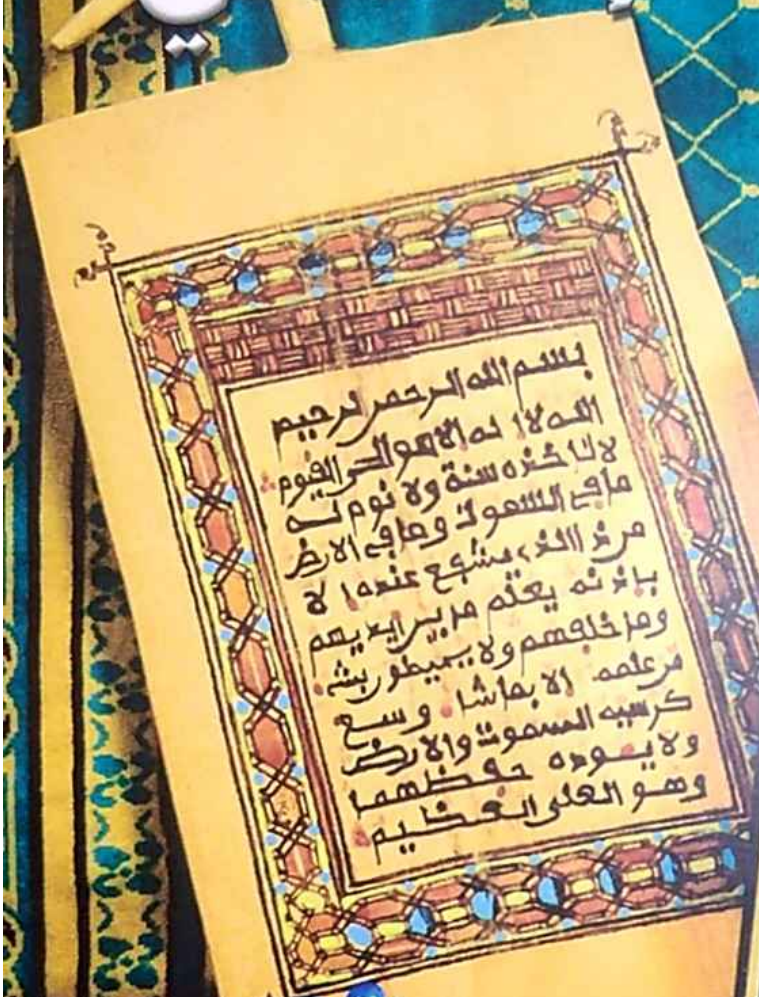 بسم الله الرحمن الرحيم
الله لا اله الا هو الحى القيوم
لا تاخذه سنة ولا نوم له
ما في السموت وما في الارض
من ذا الذي يشفع عنده الا
باذنه يعلم ما بين ايديهم
وما خلفهم ولا يحيطون بشي
من علمه الا بما شا وسع
كرسيه السموت والارض
ولا يوده حفظهما
وهو العلى العظيم